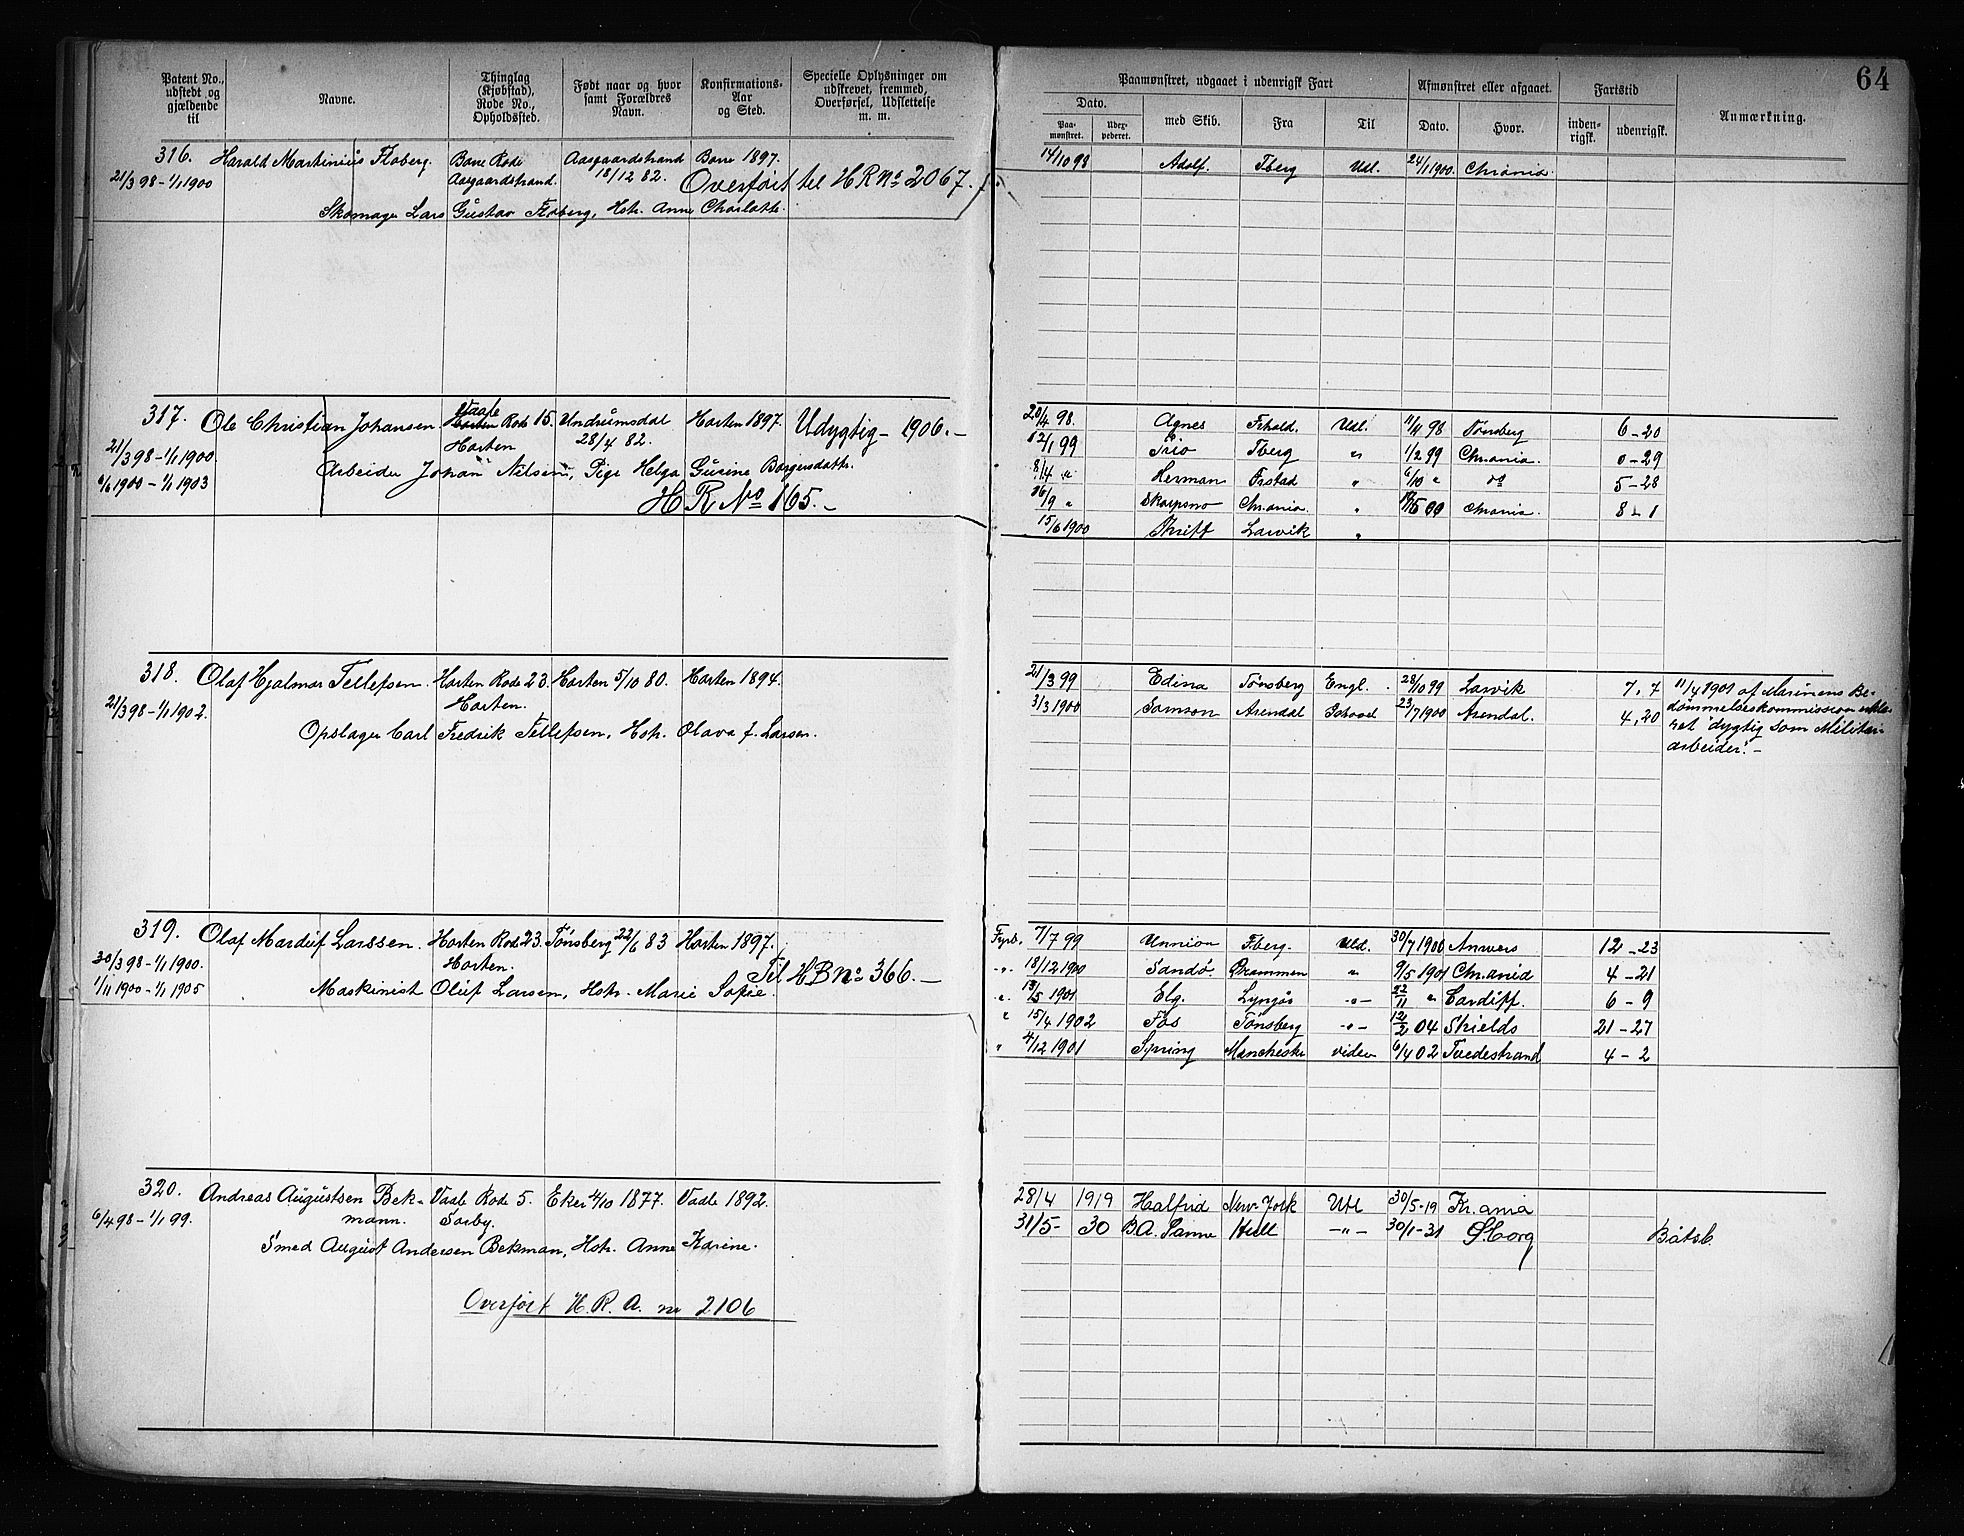 Patent No., udstedt og gjældende til
Navne.
Thinglag (Kjøbstad), Rode No., Opholdssted.
Født naar og hvor samt Forældres Navn.
Konfirmations- Aar og Sted.
Specielle Oplysninger om udskrevet, fremmed, Overførsel, Udslettelse m. m.
Paamønstret, udgaaet i udenrigsk Fart
Afmønstret eller afgaaet.
Fartstid
Anmærkning.
64
Dato.
Paa- mønstret.
med Skib.
Fra
Til
Dato.
Hvor.
inden- rigsk.
udenrigsk.
316. Harald Martinius Floberg. Borre Rode Aasgaardstrand Borre 1897.
21/3 98 – 1/1 1900 Aasgaardstrand. 18/12 82. Overført til H R No 2067.
Skomager Lars Gustav Floberg, Hstr. Anne Charlotte.
14/10 98 Adolf. Tberg Udl. 24/1 1900. Chrania.
317. Ole Christian Johansen. Vaale Horten Rode 15. Undrumsdal Horten 1897. Udygtig – 1906. –
21/3 98 – 1/1 1900. Horten 28/4 82.
Arbeider Johan Nilsen, Pige Helga Gusine Borgersdattr.
1/1 1903
H R No 165. –
20/4 98. Agnes Frhald. Udl. 98 Tønsberg 6 – 20
12/1 99 Trio Tberg " 1/2 99 Chrania. 0 – 29
8/4 " Herman Frstad " 6/10 " do 5 – 28
16/9 " Skarpsno Chrania. " 00 Chrania. 8 – 1
15/6 1900 Thrift Larvik "
318. Olaf Hjalmar Tellefsen. Horten Rode 23. Horten 5/10 80. Horten 1894.
21/3 98 – 1/1 1902. Horten.
Opslager Carl Fredrik Tellefsen, Hstr. Olava f. Larsen.
21/3 99 Edina Tønsberg Engl. 28/10 99 Larvik 7, 7
3/3 1900 Samson Arendal 23/7 1900 Arendal. 4, 20
11/4 1901 af Marinens Be-
dømmelseskommission erklæ-
ret "dygtig som Militær-
arbeider". –
319. Olaf Larssen. Horten Rode 23. Tønsberg 22/6 83 Horten 1897.
30/3 98 – 1/1 1900. Horten. Til H R No 366. –
1/11 1900 – 1/1 1905 Maskinist Oluf Larsen, Hstr. Marie Sofie.
Fyrb. 7/7 99 Unnion Tberg. Udl. 30/7 1900 Anvers 12 – 23
– " – 18/12 1900 Sandø. Drammen " 9/5 1901 Chrania 4 – 21
" 13/5 1901 Elg. Lyngør – " – 22/11 " Cardiff. 6 – 9
" 15/4 1902 Fos Tønsberg – " – 12/2 04 Shields 21 – 27
" 4/12 1901 Spring Manchester viden 6/4 02 Tvedestrand 4 – 2
320. Andreas Augustsen Bek- Vaale Rode 5. Eker 4/10 1877. Vaale 1892.
6/4 98 – 1/1 99. mann. Sørby.
Smed August Andersen Bekman, Hstr. Anne Karine.
Overført H. R. A. nr 2106
28/4 1919 Halfrid New-York Utl 30/5-19 Kr.ania
31/5- 30 B.A. Sanne Hull – " – 30/1-31 S.borg Båtsb.